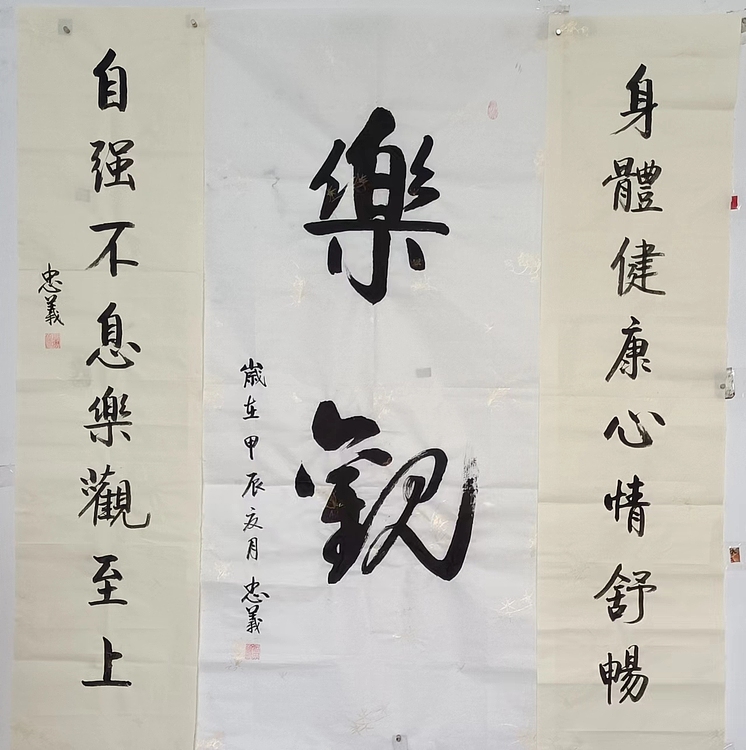 身體健康心情舒暢
樂觀
歲在甲辰夏月 忠義
自强不息樂觀至上
忠義